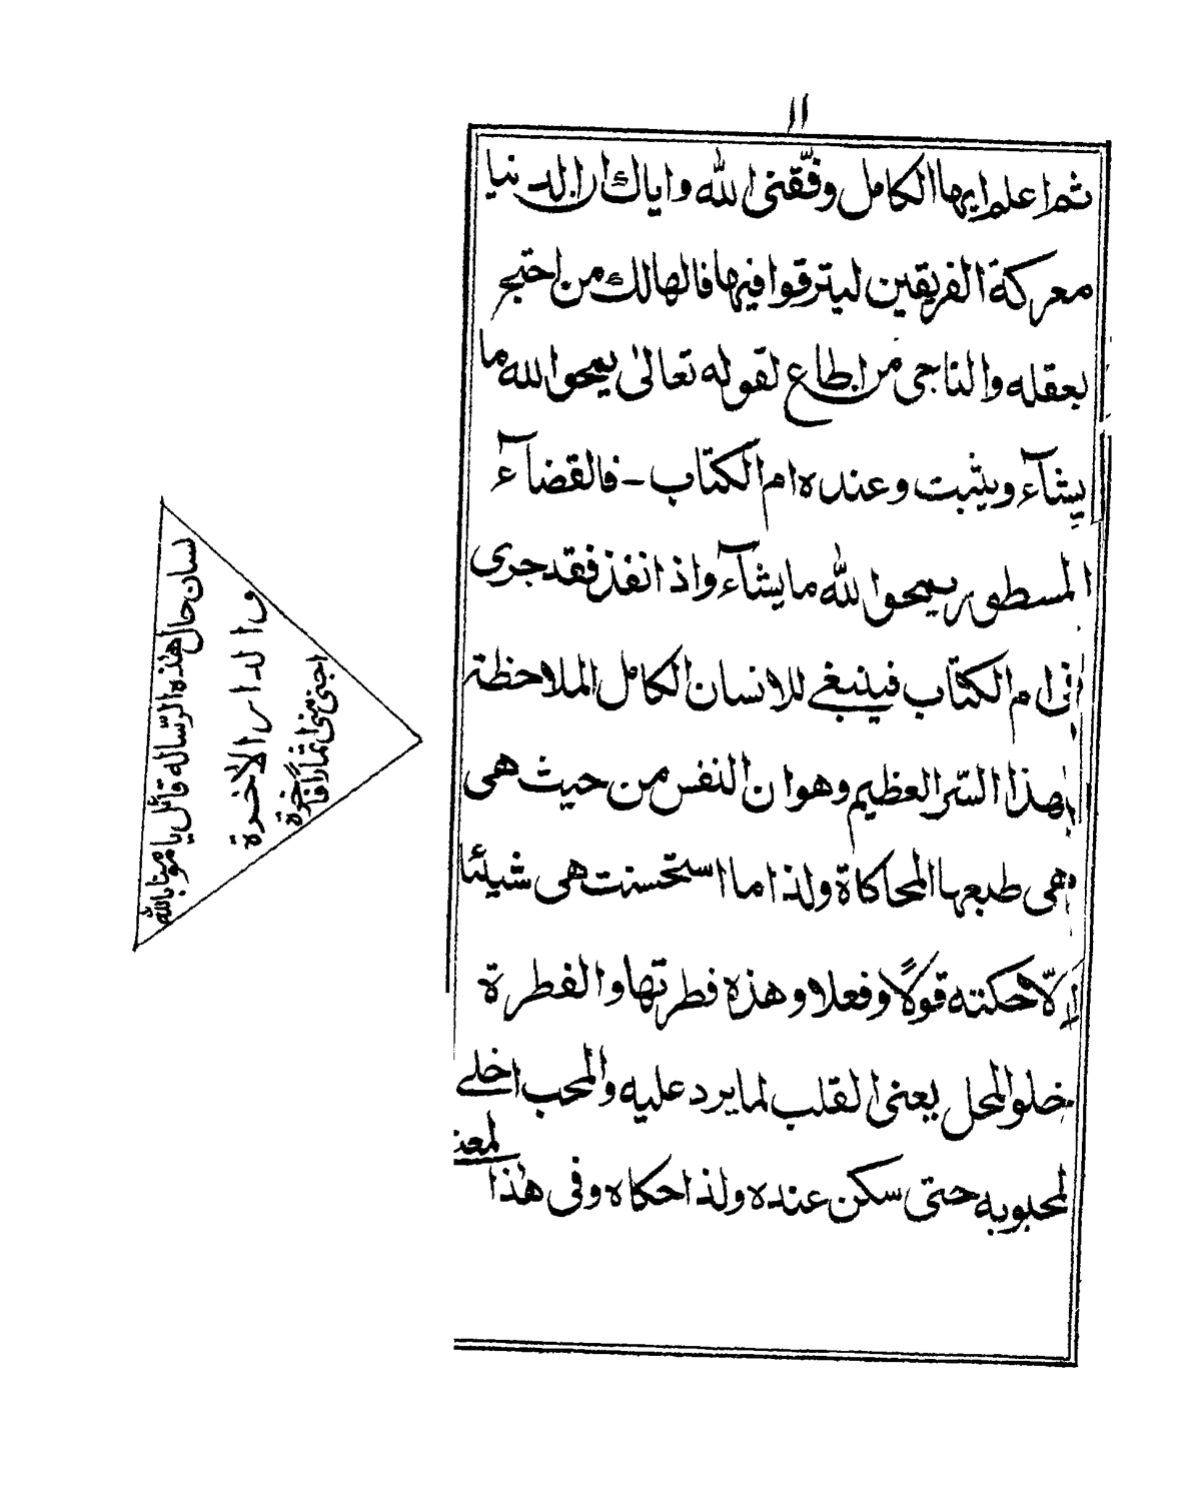 ١١
ثم اعلم ايها الكامل وفّقنى الله واياك ان الدنيا
معركة الفريقين ليترقوا فيها فالهالك من احتج
بعقله والناجى من اطاع لقوله تعالىٰ يمحوا الله ما
يشآء ويثبت وعنده ام الكتاب - فالقضآء
المسطور يمحوا لله ما يشآء واذا نفذ فقد جرى
فى ام الكتاب فينبغے للانسان الكامل الملاحظة
لهذا السّر العظيم وهو ان النفس من حيث هى
هى طبعها المحاكاة ولذا ما استحسنت هى شيئا
الّا حكته قولًا وفعلا وهذه فطرتها والفطرة
خلو المحل يعنى القلب لما يرد عليه والمحب اخلے
لمحبوبه حتى سكن عنده ولذا حكاه وفى هٰذا
المعنے
لسان حال هٰذه الرّسالة قائل يا مومنا بالله
والدار الاخرة
اجنى منى ثمارا فاخرة